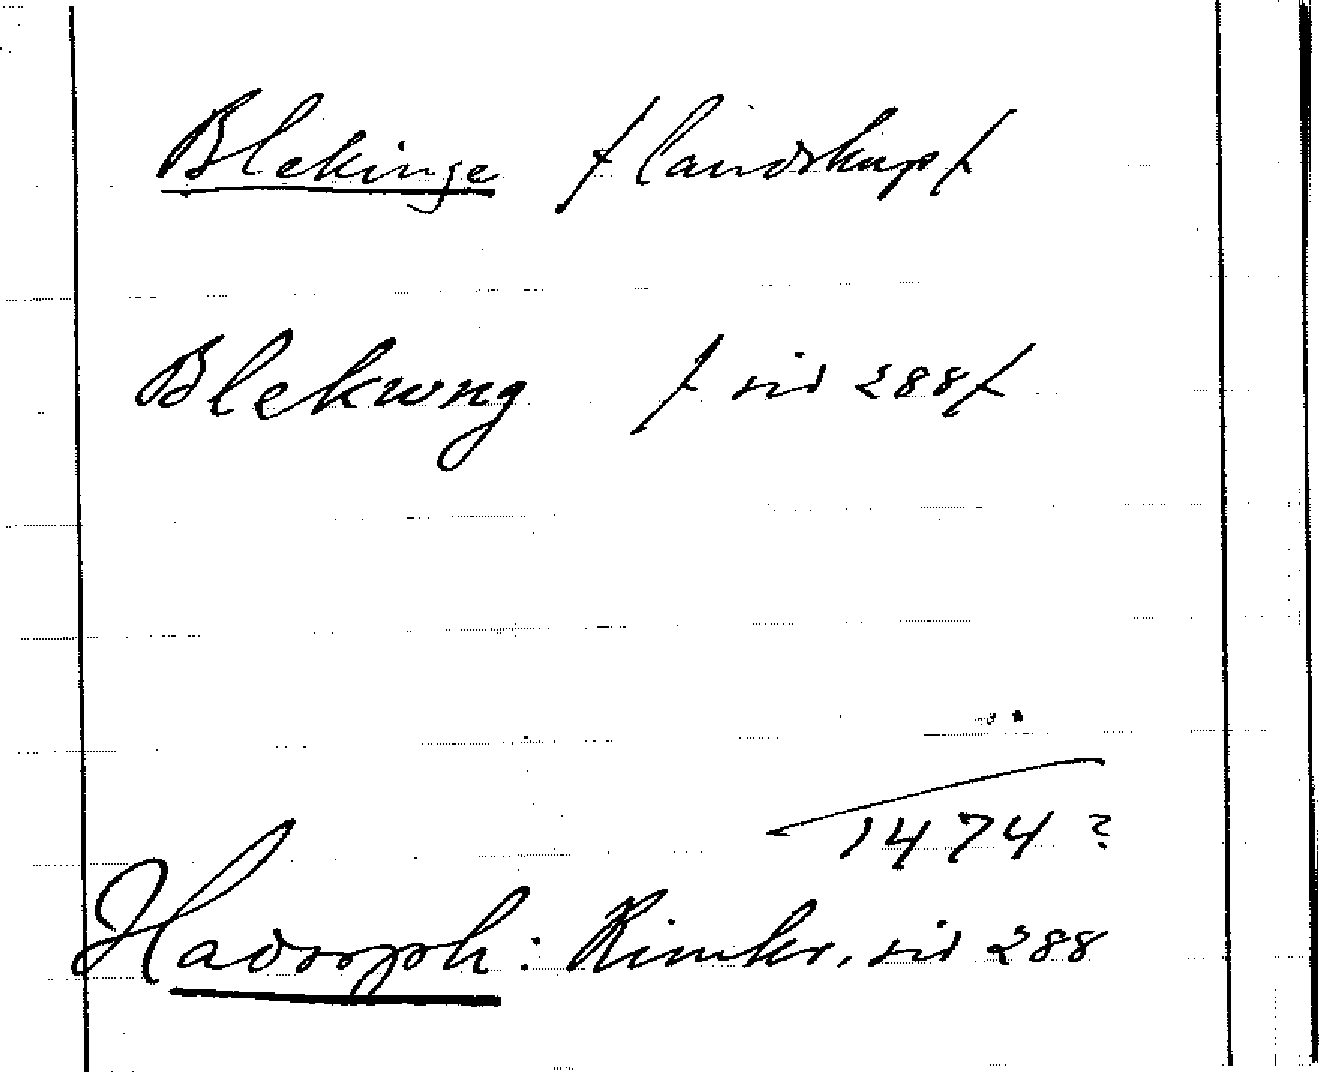 Blekinge /landskap/
Blekwng /sid 288/
1474?
Hadorph: Rimkr, sid 288